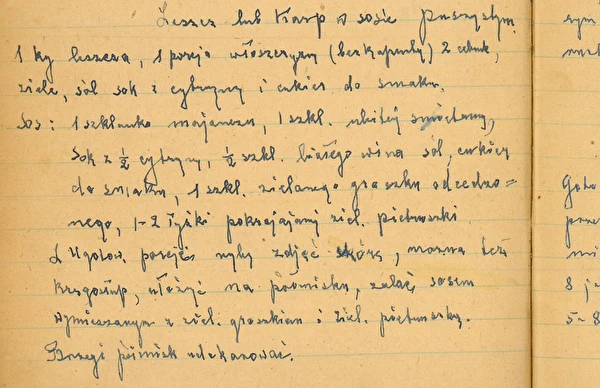 Leszcz lub Karp w sosie puszystym
1 kg leszcza, 1 porcja włoszczyzny (bez kapusty) 2 cebule,
ziele, sól sok z cytryny i cukier do smaku.
Sos: 1 szklanka majonezu, 1 szkl. ubitej śmietany,
Sok z ½ cytryny, ½ szkl. białego wina sól, cukier
do smaku, 1 szkl. zielonego groszku odcedzo=
nego, 1-2 łyżki pokrajanej ziel. pietruszki
Z Ugotow. porcji ryby zdjąć skórę, można też
kręgosłup, ułożyć na półmisku, zalać sosem
wymieszanym z ziel. groszkiem i ziel. pietruszką.
Brzegi półmisk udekorować.
rym
Goto
prze
mi
8 j
5-8